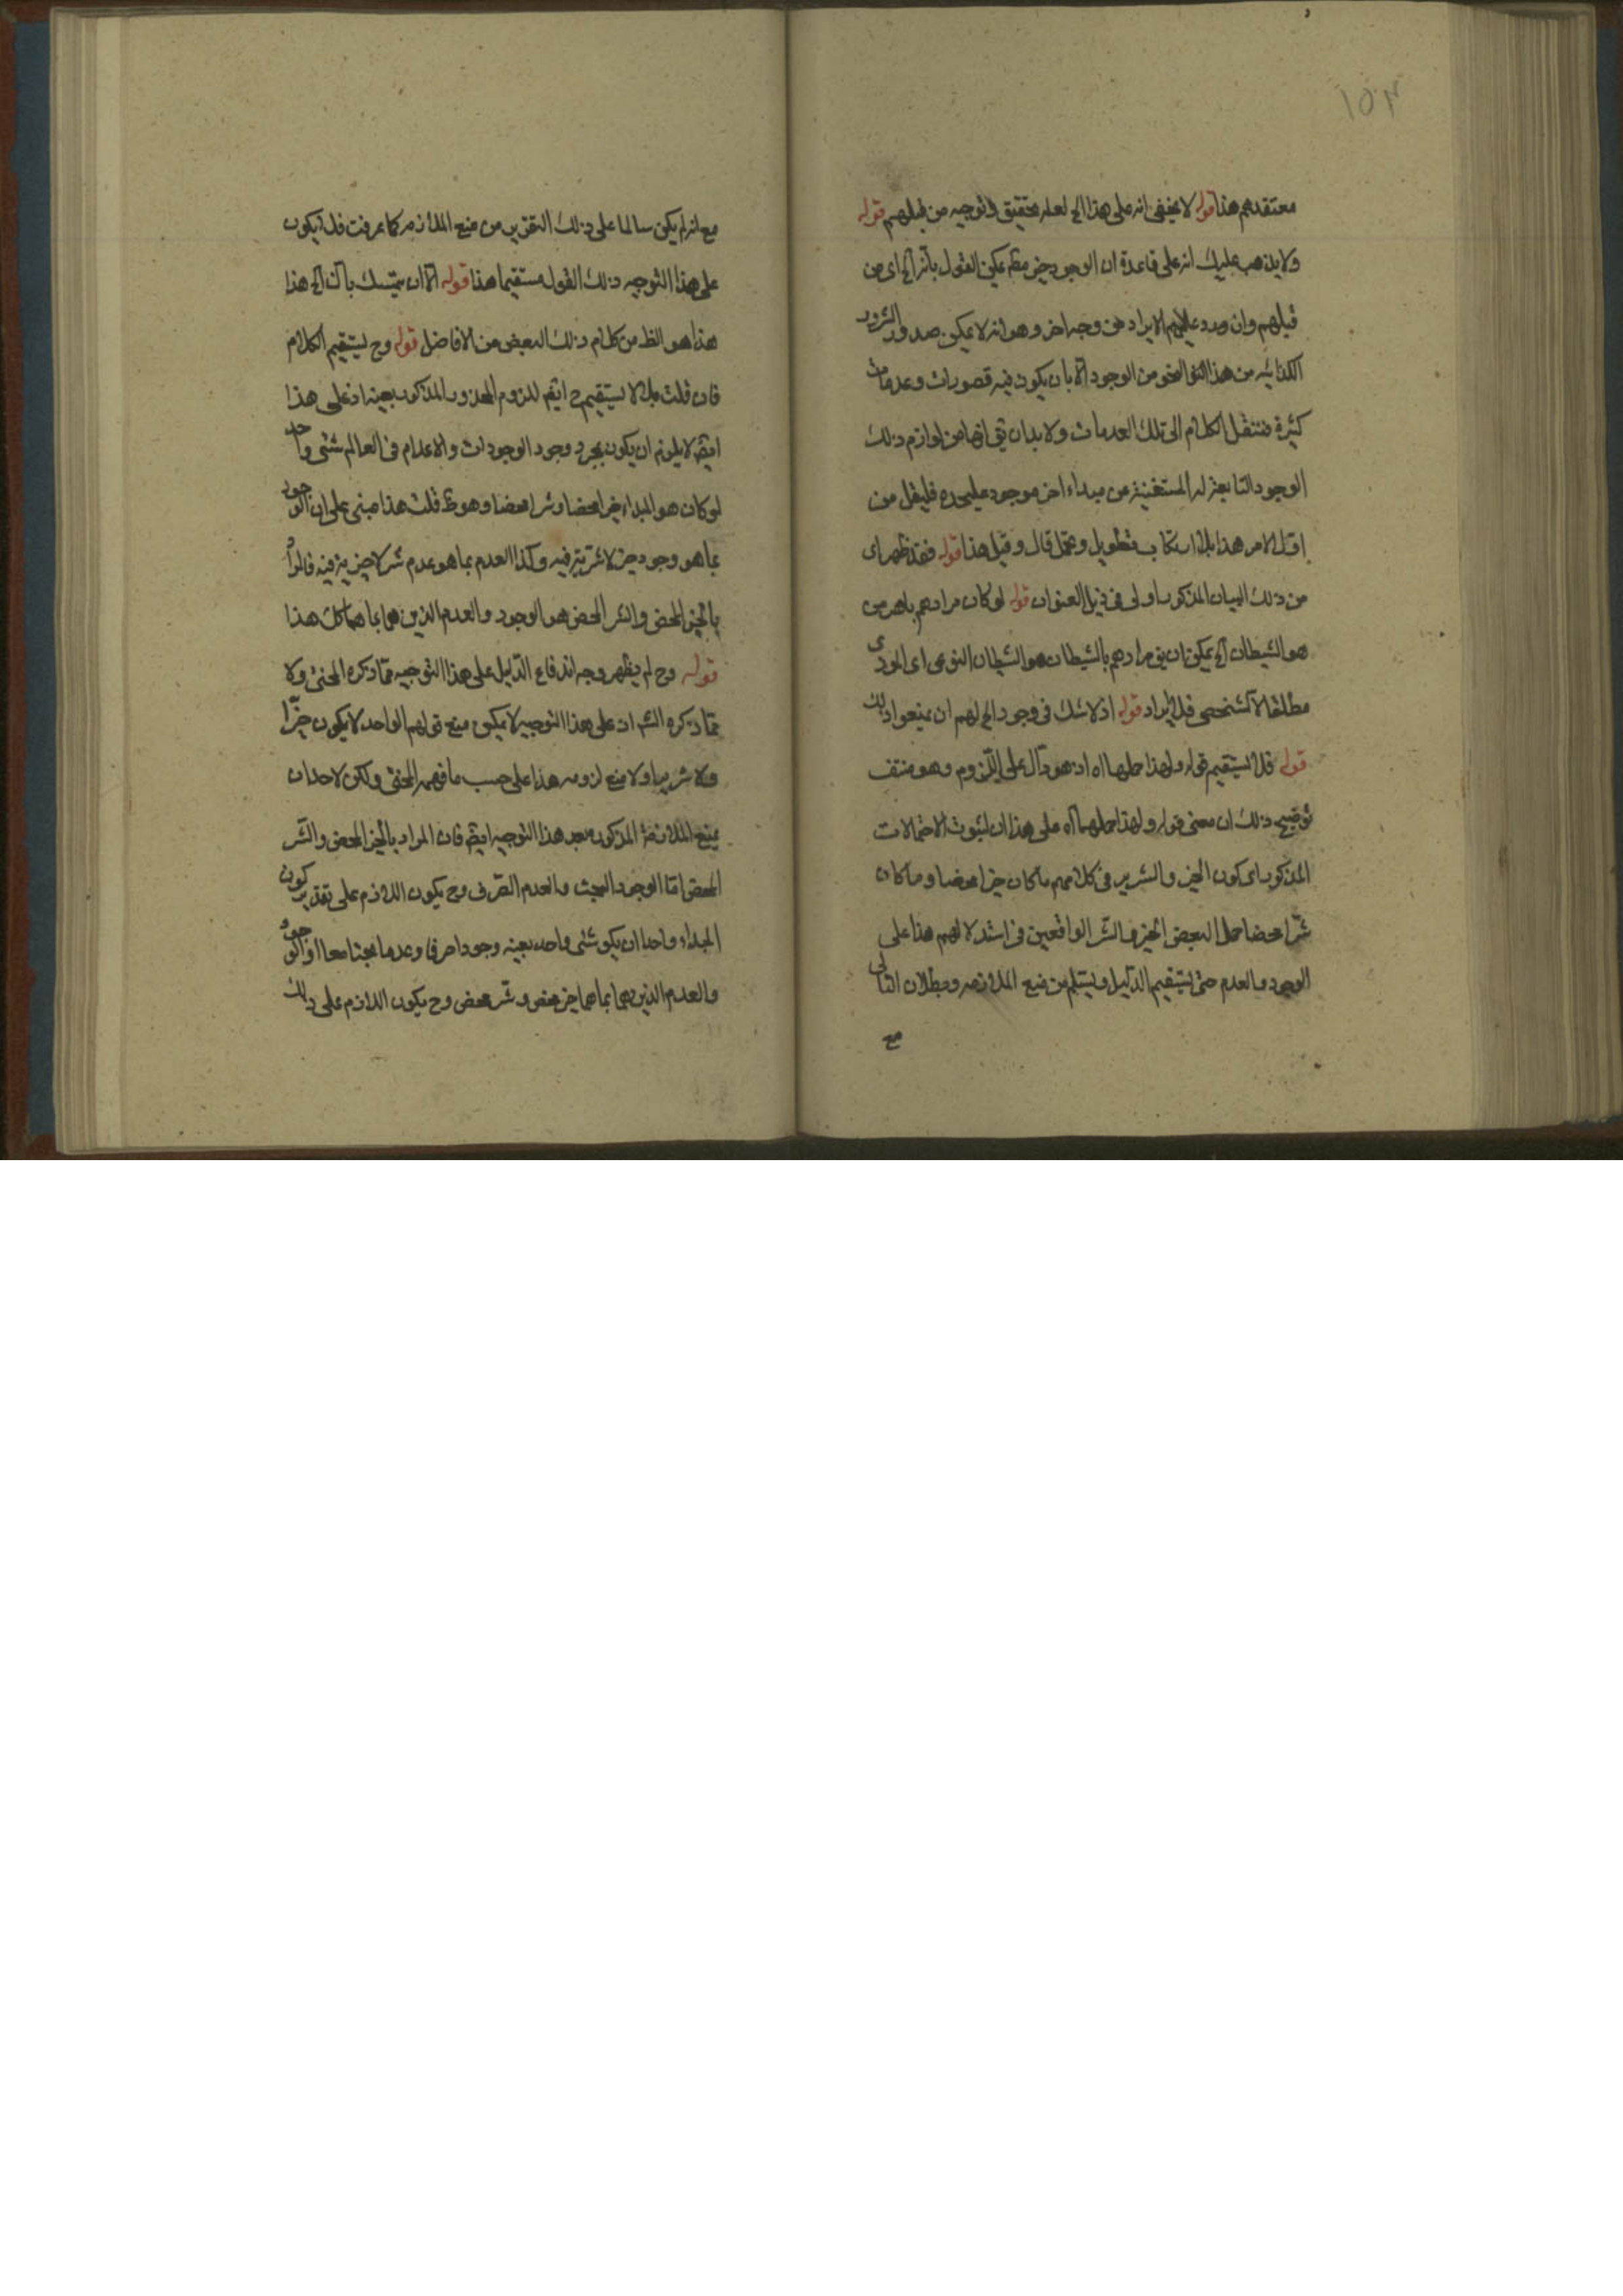 ١٥٢
معتقدهم هذا قوله لا يخفى انه على هذا الخ لعله تحقيق و توجيه من قبلهم قوله
ولا يذهب عليك انه على قاعدة ان الوجود خير مط يمكن القول بانه الخ اى من
قبلهم وان ورد عليهم الايراد من وجه اخر وهو انه لا يمكن صدور الشرور
الكذائيه من هذا النحو من الوجود الا بان يكون فيه قصورات وعدمات
كثيرة فننتقل الكلام الى تلك العدمات ولا بد ان يق انها من لوازم ذلك
الوجود التابعة له المستغنية عن مبداء اخر موجود عليحده فليقل من
اول الامر هذا بلا ارتكاب تطويل وتمحل قال وقيل هذا قوله فقد ظهر اى
من ذلك البيان المذكور اولى فى ذيل العنوان قوله لو كان مرادهم باهرمن
هو الشيطان الخ يمكن ان يق مرادهم بالشيطان هو الشيطان النوعى اى الموذى
مطلقا لا الشخصى فلا ايراد قوله اذ لا شك فى وجود الخ لهم ان يمنعوا ذلك
قوله فلا يستقيم قوله ولهذا حملها اه اذ هو دال على اللزوم وهو منتف
توضيح ذلك ان معنى قوله ولهذا حملهما اه على هذا ان لثبوت الاحتمالات
المذكور اى كون الخير والشرير فى كلامهم ما كان خيرا محضا وما كان
شرا محضا حمل البعض الخير والشر الواقعين فى استدلالهم هذا على
الوجود والعدم حتى يستقيم الدليل ويسلم من منع الملازمه وبطلان التالى
مع
مع انه لم يكن سالما على ذلك التقرير من منع الملازمه كما عرفت فلا يكون
على هذا التوجيه ذلك القول مستقيما هذا قوله الا ان يتمسك بان الخ هذا
هذا هو الظ من كلام ذلك البعض من الافاضل قوله وح ليستقيم الكلام
فان قلت بل لا يستقيم ح ايض للزوم المحذور المذكور بعينه اذ على هذا
ايض لا يلزم ان يكون بمجرد وجود الوجودات والاعدام فى العالم شئى واحد
لو كان هو المبداء خيرا محضا وشرا محضا وهو ظ قلت هذا مبنى على ان الوجود
بما هو وجود خير لا شرية فيه وكذا العدم بما هو عدم شر لا خيرية فيه فالمراد
بالخير المحض والشر المحض هو الوجود والعدم الذين هما بما هما كك هذا
قوله وح لم يظهر وجه اندفاع الدليل على هذا التوجيه مما ذكره المحشى ولا
مما ذكره الش اذ على هذا التوجيه لا يمكن منع قولهم الواحد لا يكون خيرا
ولا شريرا ولا منع لزومه هذا على حسب ما فهمه المحشى ولكن لاحد ان
يمنع الملازمة المذكور بعد هذا التوجيه ايض فان المراد بالخير المحض والشر
المحض اما الوجود البحت والعدم الصرف وح يكون اللازم على تقدير كون
المبداء واحدا ان يكون شئى واحد بعينه وجودا صرفا وعدما بحتا معا او الوجود
والعدم الذين هما بما هما خير محض وشر محض وح يكون اللازم على ذلك